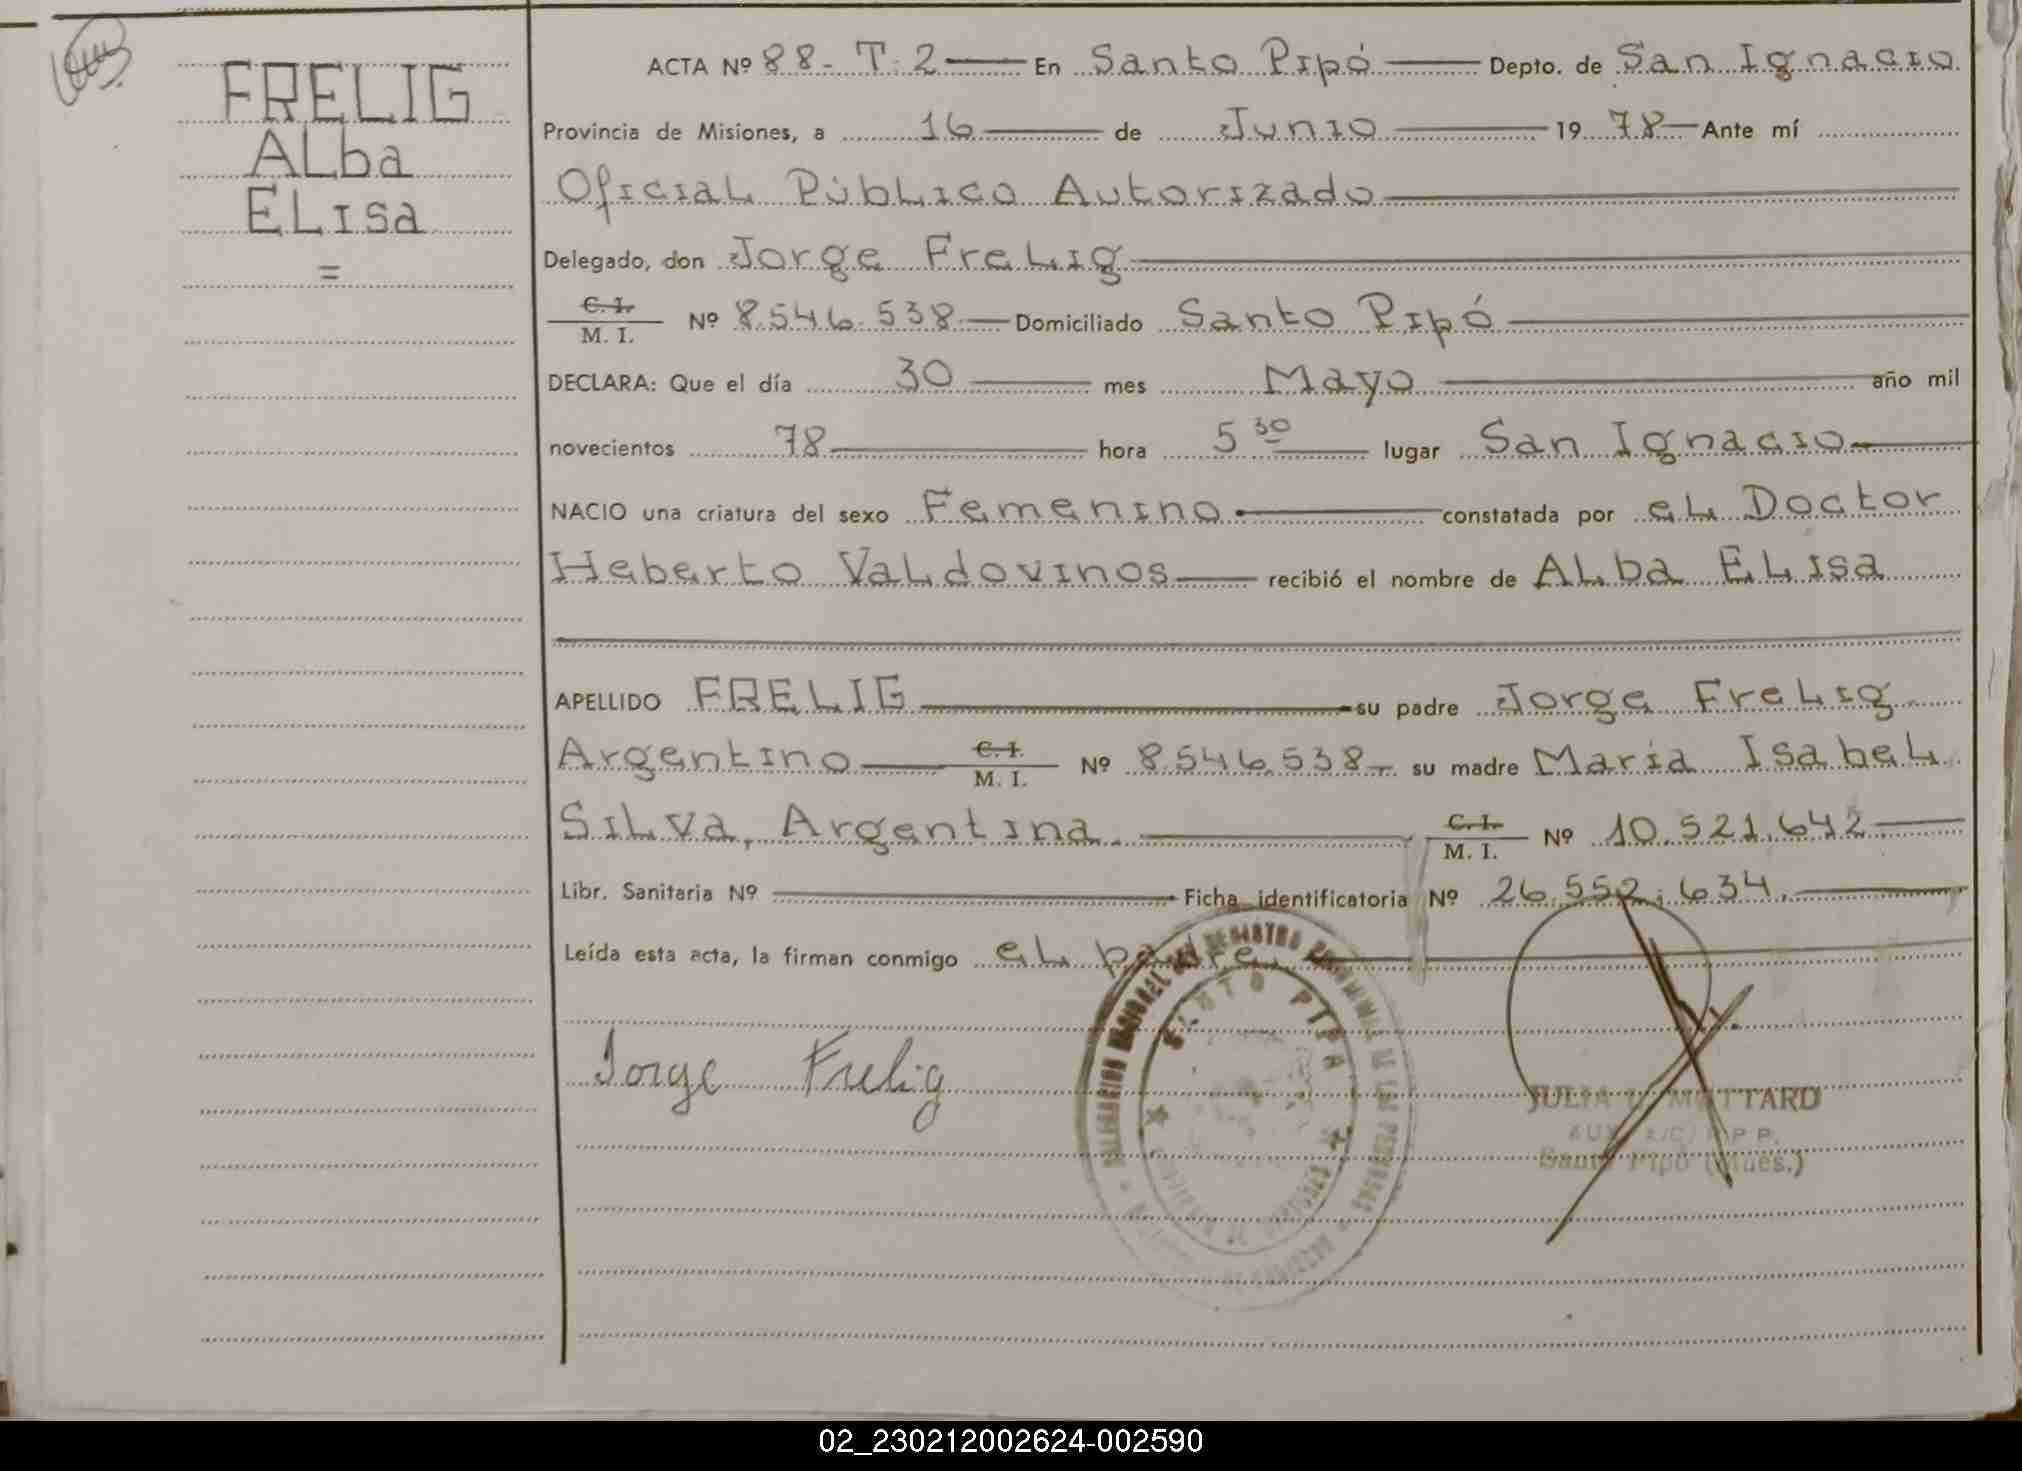 FRELIG
Alba
Elisa
=
ACTA Nº 88-T.2 En Santo Pipó Depto. de San Ignacio
Provincia de Misiones, a 16 de Junio 1978 Ante mí
Oficial Público Autorizado
Delegado, don Jorge Frelig
C.I.
M. I. Nº 8.546.538 Domiciliado Santo Pipó
DECLARA: Que el día 30 mes Mayo año mil
novecientos 78 hora 5 30 lugar San Ignacio
NACIO una criatura del sexo Femenino constatada por el Doctor
Heberto Valdovinos recibió el nombre de Alba Elisa
APELLIDO FRELIG su padre Jorge Frelig
Argentino C.I. M. I. Nº 8.546.538 su madre María Isabel
Silva, Argentina. C.I. M. I. Nº 10.521.642
Libr. Sanitaria Nº Ficha identificatoria Nº 26.552.634.
Leída esta acta, la firman conmigo el padre.
Jorge Frelig
SANTO PIPO
JULIA MOTTARD
Santo Pipó (Mnes.)
02_230212002624-002590